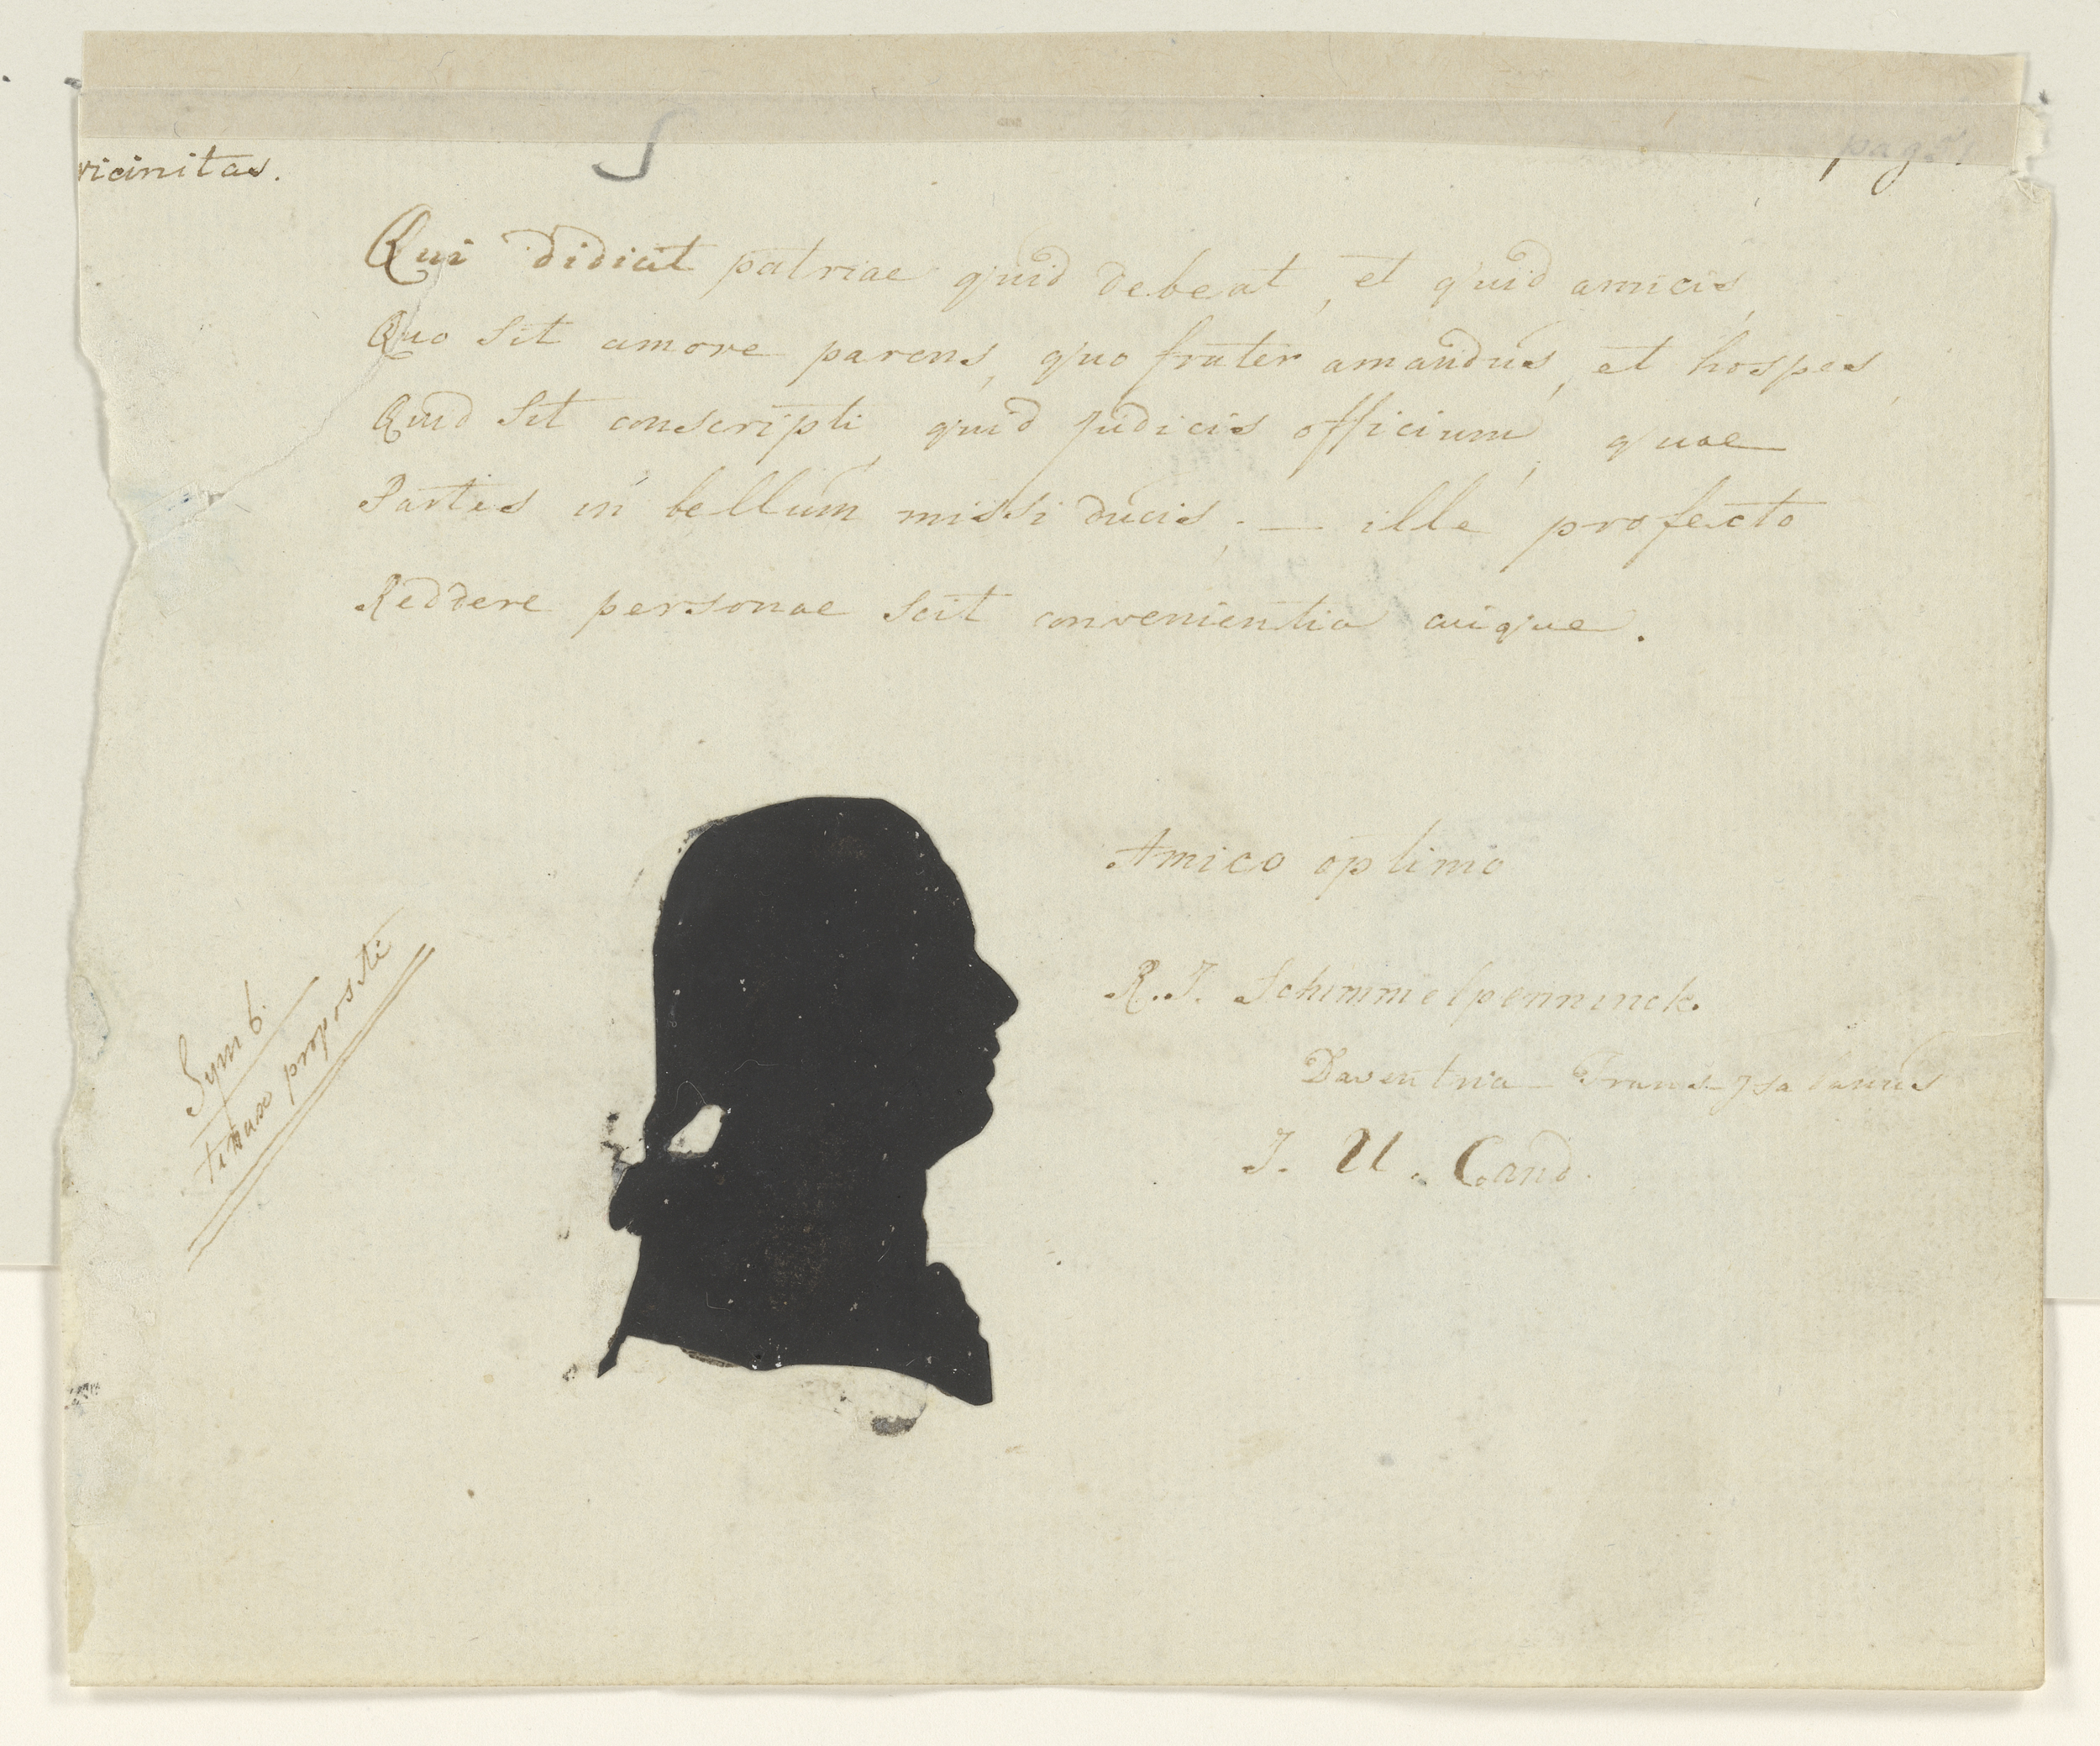 vicinitas.
pag.
Qui didicit patriae quid debeat, et quid amicis,
Quo sit amore parens, quo frater amandus, et hospes,
Quid sit conscripti, quid judicis officium, quae
Partes in bellum missi ducis; — ille profecto
Reddere personae scit convenientia cuique.
Amico optimo
R. J. Schimmelpenninck.
Daventria - Trans-Isalanus
J. U. Cand.
Symb.
tenax propositi